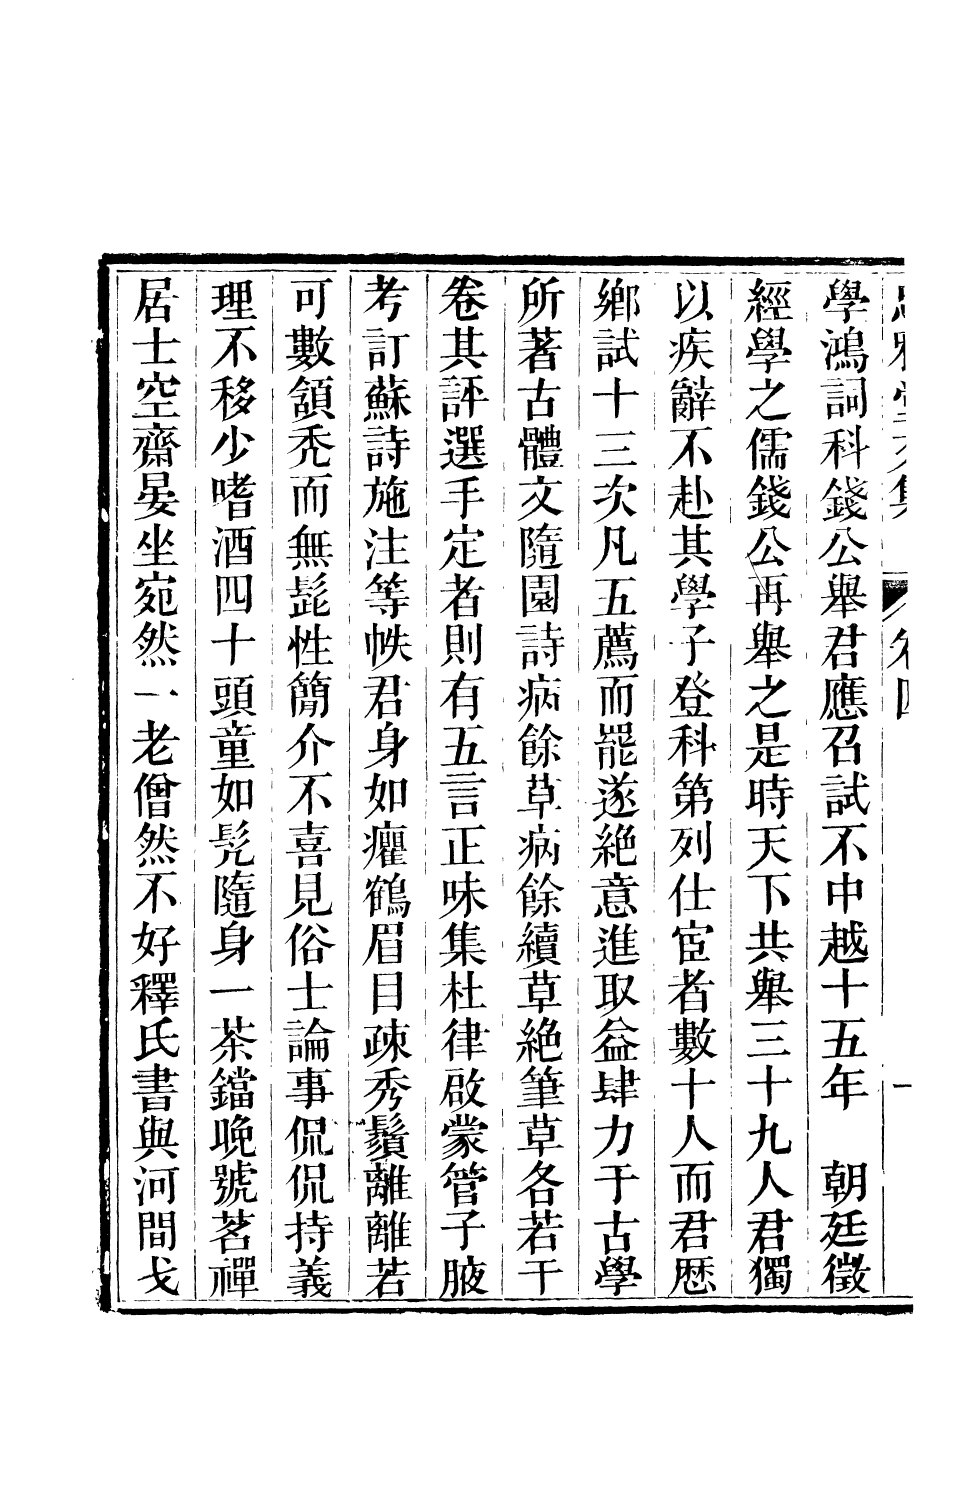 忠雅堂文集 卷四 一
學鴻詞科錢公舉君應召試不中越十五年　朝廷徵
經學之儒錢公再舉之是時天下共舉三十九人君獨
以疾辭不赴其學子登科第列仕宦者數十人而君歷
鄉試十三次凡五薦而罷遂絕意進取益肆力于古學
所著古體文隨園詩病餘草病餘續草絕筆草各若干
卷其評選手定者則有五言正味集杜律啟蒙管子腋
考訂蘇詩施注等帙君身如癯鶴眉目疎秀鬚離離若
可數頷禿而無髭性簡介不喜見俗士論事侃侃持義
理不移少嗜酒四十頭童如髠隨身一茶鐺晚號茗禪
居士空齋晏坐宛然一老僧然不好釋氏書與河間戈